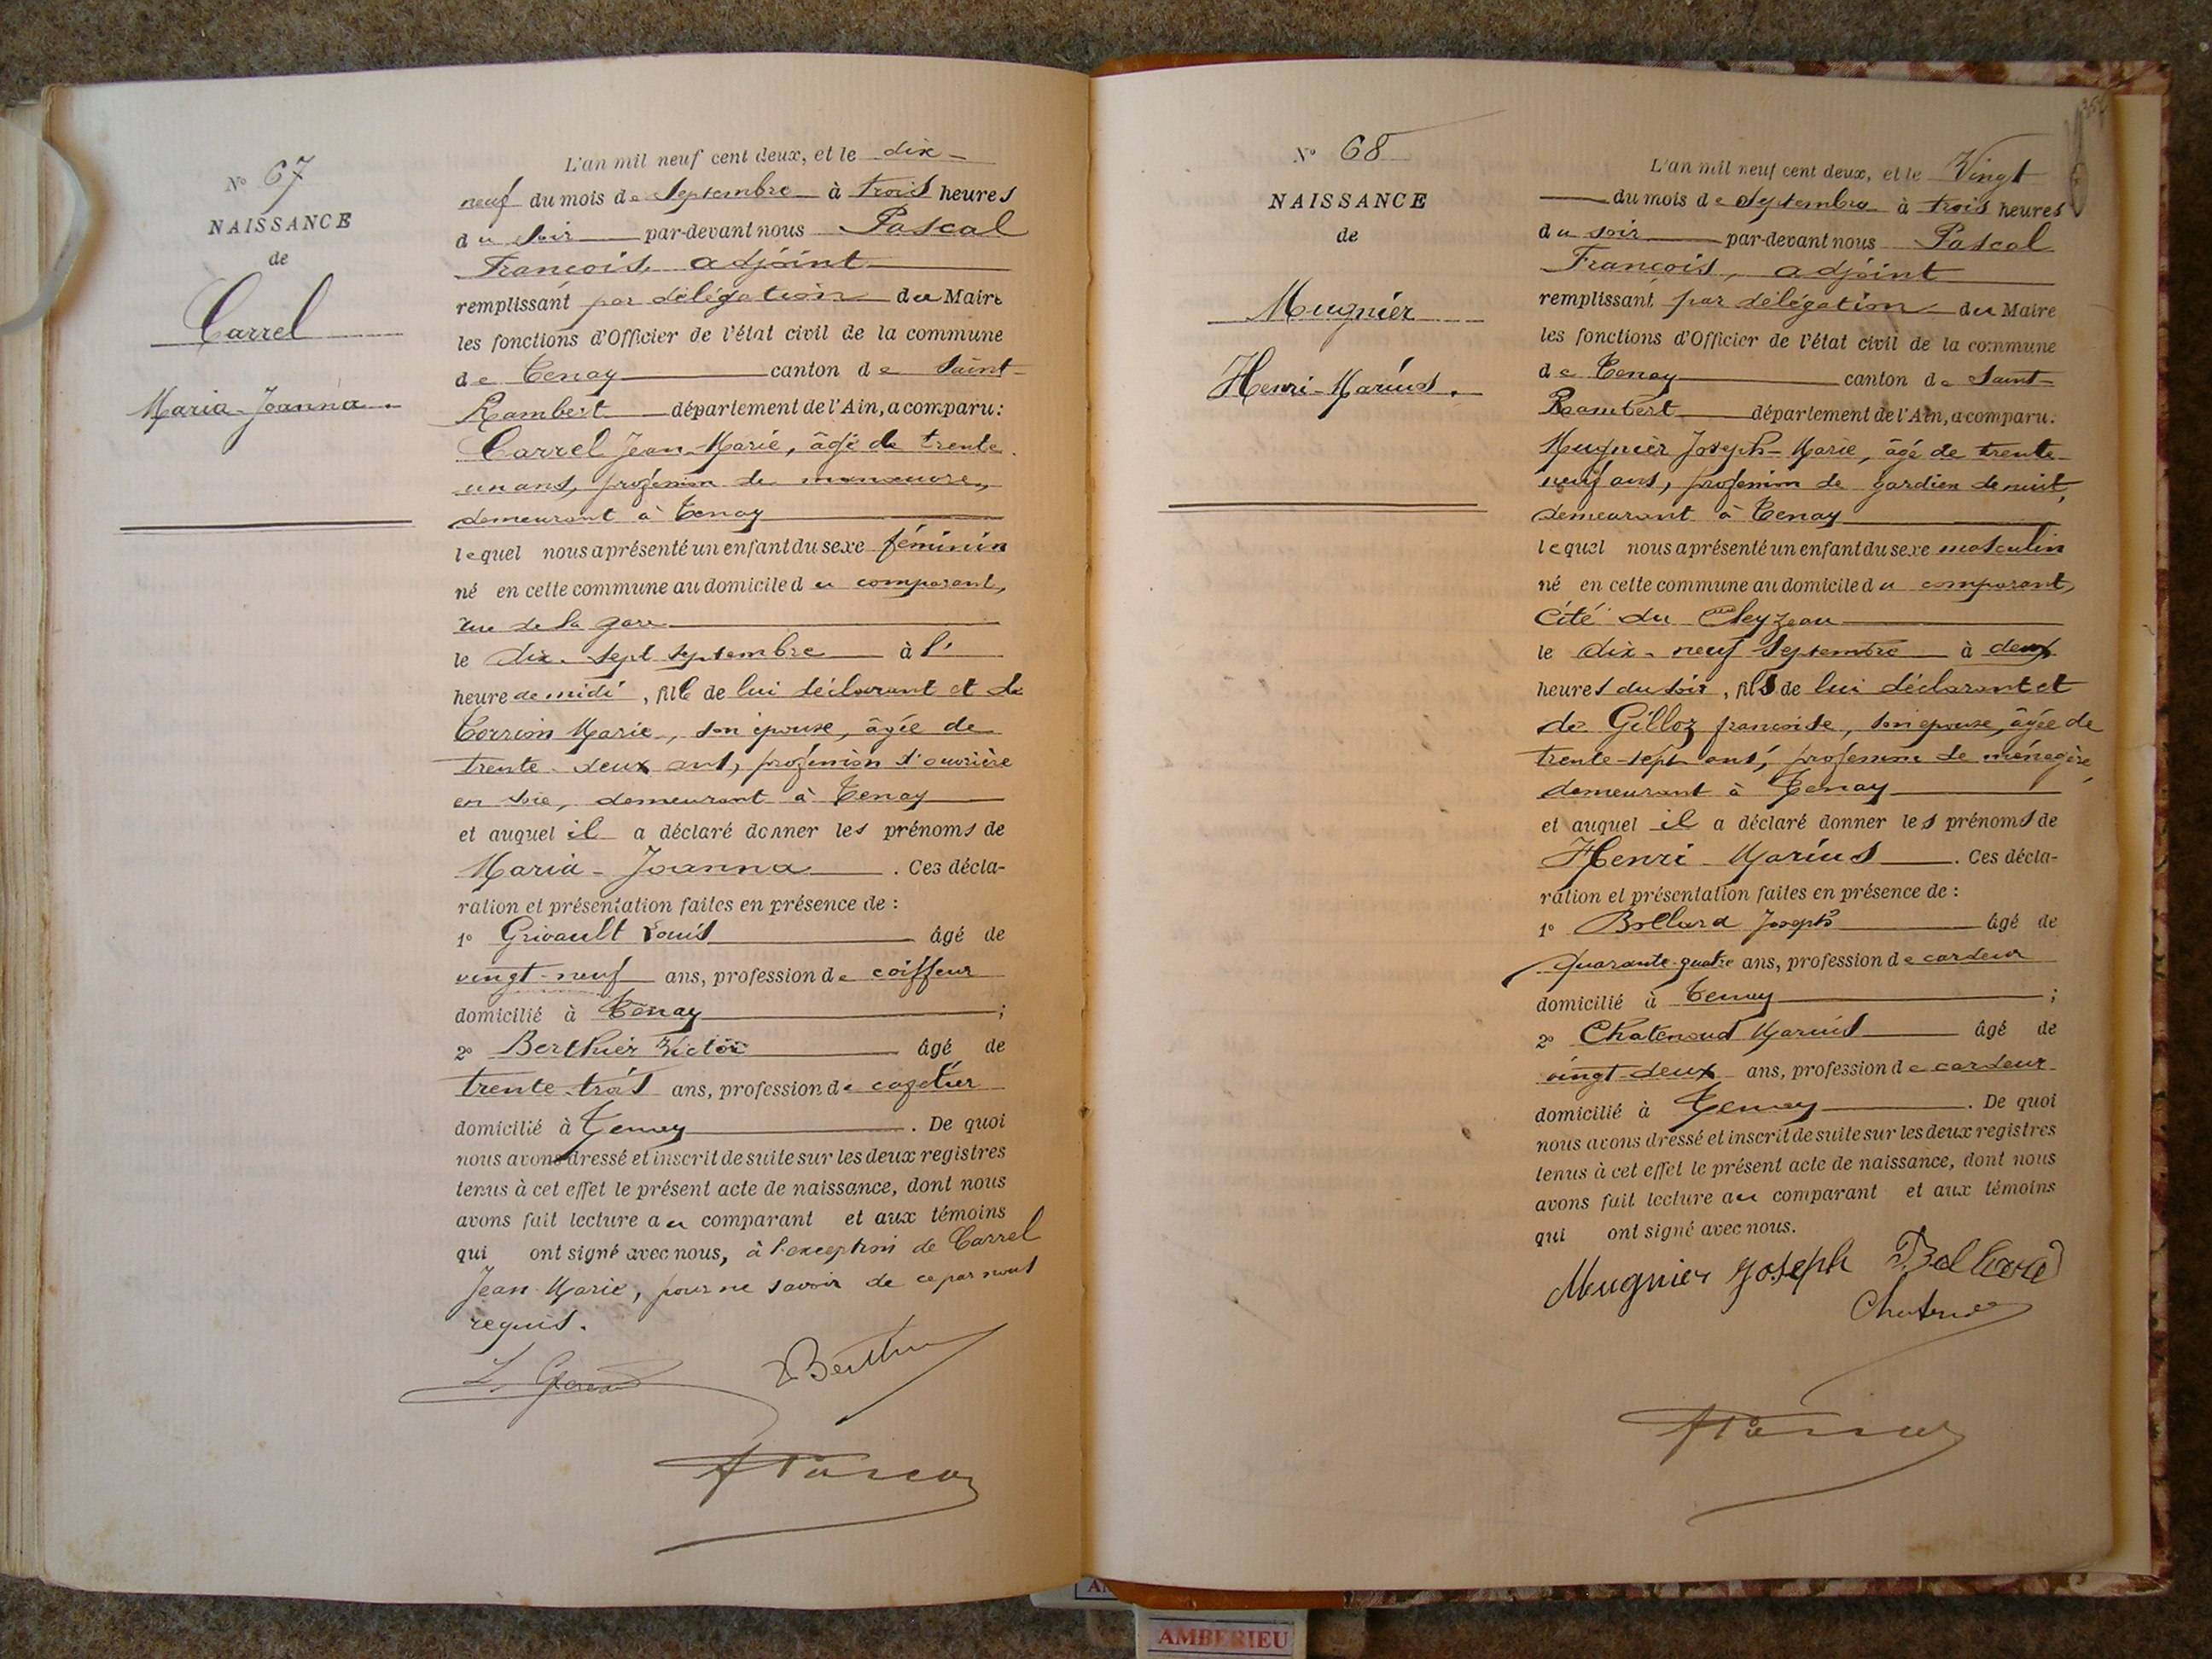 N° 67
NAISSANCE
de
Carrel
Maria-Joanna.
L'an mil neuf cent deux, et le dix-
neuf du mois de Septembre à trois heures
du soir par-devant nous Pascal
François, adjoint
remplissant par délégation du Maire
les fonctions d'Officier de l'état civil de la commune
de Tenay canton de Saint-
Rambert département de l'Ain, a comparu:
Carrel Jean-Marie, âgé de trente
un ans, profession de manœuvre,
demeurant à Tenay
lequel nous a présenté un enfant du sexe féminin
né en cette commune au domicile du comparant,
rue de la gare
le dix-sept septembre à l'
heure de midi, fille de lui déclarant et de
Corrion Marie, son épouse, âgée de
trente-deux ans, profession d'ouvrière
en soie, demeurant à Tenay
et auquel il a déclaré donner les prénoms de
Maria-Joanna. Ces décla-
ration et présentation faites en présence de :
1° Grivault Louis âgé de
vingt-neuf ans, profession de coiffeur
domicilié à Tenay ;
2° Berthier Victor âgé de
trente-trois ans, profession de cafetier
domicilié à Tenay. De quoi
nous avons dressé et inscrit de suite sur les deux registres
tenus à cet effet le présent acte de naissance, dont nous
avons fait lecture au comparant et aux témoins
qui ont signé avec nous, à l'exception de Carrel
Jean-Marie, pour ne savoir de ce par nous
requis.
L.
Berthier
Pascal
N° 68
NAISSANCE
de
Mugnier
Henri-Marius.
L'an mil neuf cent deux, et le Vingt
du mois de Septembre à trois heures
du soir par-devant nous Pascal
François, adjoint
remplissant par délégation du Maire
les fonctions d'Officier de l'état civil de la commune
de Tenay canton de Saint-
Rambert département de l'Ain, a comparu.
Mugnier Joseph-Marie, âgé de trente-
neuf ans, profession de gardien de nuit,
demeurant à Tenay
lequel nous a présenté un enfant du sexe masculin
né en cette commune au domicile du comparant,
Cité du Cleyzeau
le dix-neuf Septembre à deux
heures du soir, fils de lui déclarant et
de Gilloz françoise, son épouse, âgée de
trente-sept ans, profession de ménagère,
demeurant à Tenay
et auquel il a déclaré donner les prénoms de
Henri-Marius. Ces décla-
ration et présentation faites en présence de :
1° Bollard Joseph âgé de
quarante-quatre ans, profession de cardeur
domicilié à Tenay ;
2° Chatenoud Marius âgé de
vingt-deux ans, profession de cardeur
domicilié à Tenay. De quoi
nous avons dressé et inscrit de suite sur les deux registres
tenus à cet effet le présent acte de naissance, dont nous
avons fait lecture au comparant et aux témoins
qui ont signé avec nous.
Mugnier Joseph Bollard
Pascal
AMBERIEU